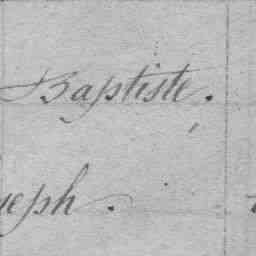 Baptiste.
seph.